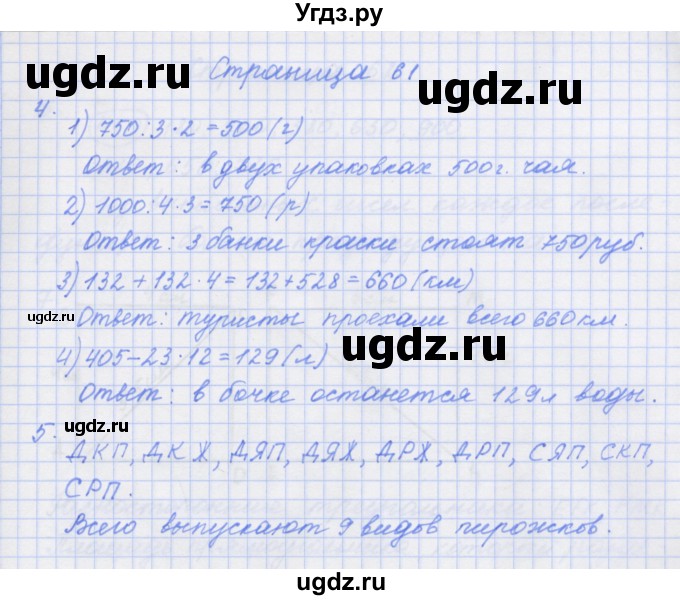 Угдз.ру
Страница 61
4.
1) 750:3·2=500(г)
Ответ: в двух упаковках 500г. чая.
2) 1000:4·3=750(р)
Ответ: 3 банки краски стоят 750руб.
3) 132+132·4=132+528=660(км)
Ответ: туристы проехали всего 660км.
4) 405-23·12=129(л)
Ответ: в бочке останется 129л воды.
5.
ДКП, ДКЖ, ДЯП, ДЯЖ, ДРЖ, ДРП, СЯП, СКП,
СРП.
Всего выпускают 9 видов пирожков.
ugdz.ru
ugdz.ru
ugdz.ru
ugdz.ru
ugdz.ru
ugdz.ru
ugdz.ru
ugdz.ru